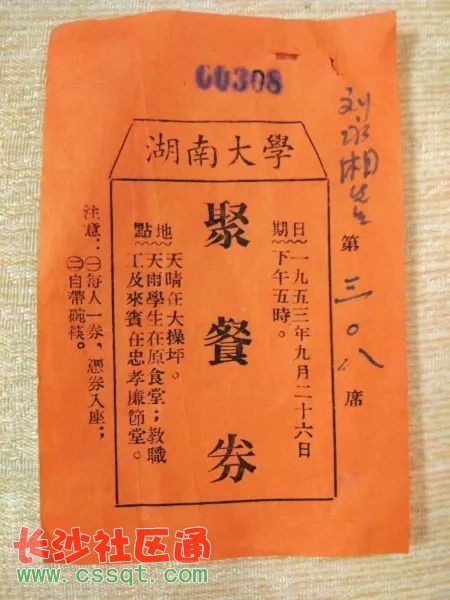 00308
湖南大學
刘
湘
第三〇八席
日期
一九五三年九月二十六日
下午五時。
聚餐券
地點
天晴在大操坪。
天雨學生在原食堂；教職
工及來賓在忠孝廉節堂。
注意：㊀每人一券，憑券入座；
㊁自帶碗筷。
长沙社区通
www.cssqt.com